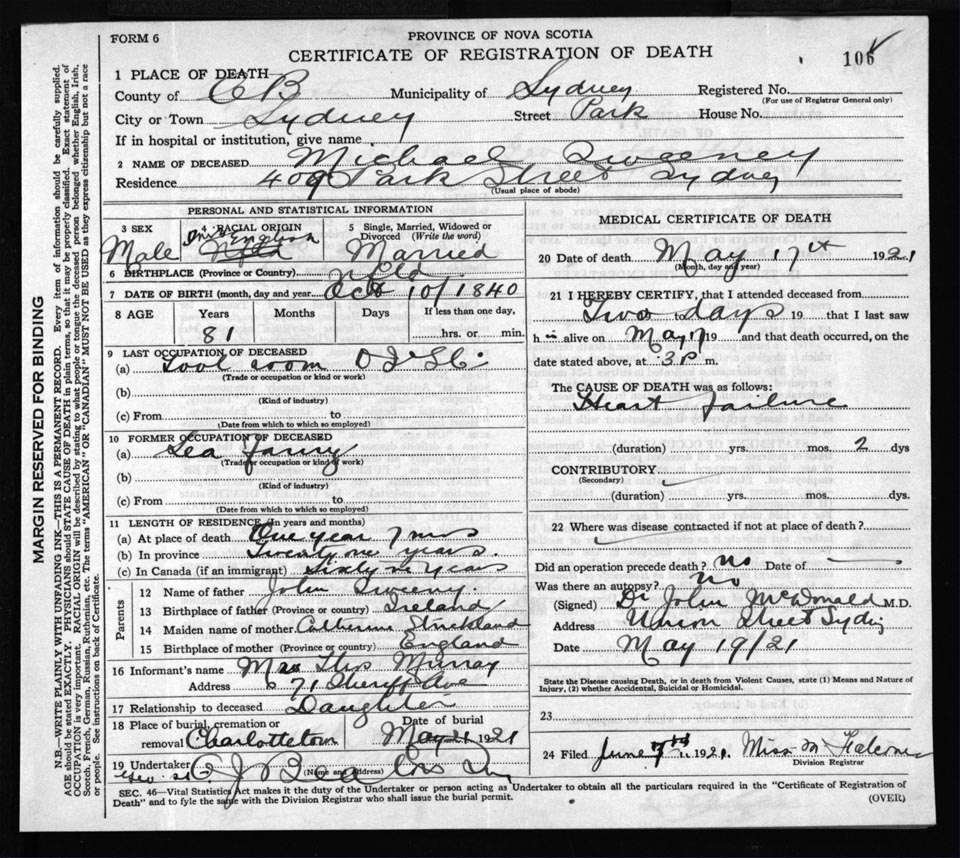 FORM 6
PROVINCE OF NOVA SCOTIA
CERTIFICATE OF REGISTRATION OF DEATH
106
1 PLACE OF DEATH
County of CB Municipality of Sydney Registered No.
(For use of Registrar General only)
City or Town Sydney Street Park House No.
If in hospital or institution, give name
2 NAME OF DECEASED Michael Sweeney
Residence 409 Park Street Sydney
(Usual place of abode)
PERSONAL AND STATISTICAL INFORMATION
3 SEX 4 RACIAL ORIGIN 5 Single, Married, Widowed or Divorced (Write the word)
Male English Nfld Married
6 BIRTHPLACE (Province or Country) Nfld.
7 DATE OF BIRTH (month, day and year) Oct 10/1840
8 AGE Years Months Days If less than one day,
81 hrs. or min.
9 LAST OCCUPATION OF DECEASED
(a) Tool room
(Trade or occupation or kind of work)
(b)
(Kind of industry)
(c) From to
(Date from which to which so employed)
10 FORMER OCCUPATION OF DECEASED
(a) Sea
(Trade or occupation or kind of work)
(b)
(Kind of industry)
(c) From to
(Date from which to which so employed)
11 LENGTH OF RESIDENCE (In years and months)
(a) At place of death One year 7 mos
(b) In province Twenty one years.
(c) In Canada (if an immigrant) Sixty years
Parents
12 Name of father John Sweeny
13 Birthplace of father (Province or country) Ireland
14 Maiden name of mother Catherine Strickland
15 Birthplace of mother (Province or country) England
16 Informant's name Mrs Thos Murray
Address 71 Sheriff Ave
17 Relationship to deceased Daughter
18 Place of burial, cremation or removal Charlottetown Date of burial May 21 1921
19 Undertaker
(Name and address)
MEDICAL CERTIFICATE OF DEATH
20 Date of death May 17th 1921
(Month, day and year)
21 I HEREBY CERTIFY, that I attended deceased from
Two days 19 that I last saw
h alive on May 17 19 and that death occurred, on the
date stated above, at 3 P m.
The CAUSE OF DEATH was as follows:
Heart failure
(duration) yrs. mos. 2 dys
CONTRIBUTORY
(Secondary)
(duration) yrs. mos. dys.
22 Where was disease contracted if not at place of death?
Did an operation precede death? no Date of
Was there an autopsy? no
(Signed) Dr John McDonald M.D.
Address Union Street Sydney
Date May 19/21
State the Disease causing Death, or in death from Violent Causes, state (1) Means and Nature of Injury, (2) whether Accidental, Suicidal or Homicidal.
23
24 Filed June 1921. Miss M
Division Registrar
SEC. 46—Vital Statistics Act makes it the duty of the Undertaker or person acting as Undertaker to obtain all the particulars required in the "Certificate of Registration of
Death" and to fyle the same with the Division Registrar who shall issue the burial permit. (OVER)
MARGIN RESERVED FOR BINDING
N.B.—WRITE PLAINLY WITH UNFADING INK—THIS IS A PERMANENT RECORD. Every item of information should be carefully supplied.
AGE should be stated EXACTLY. PHYSICIANS should STATE CAUSE OF DEATH in plain terms, so that it may be properly classified. Exact statement of
OCCUPATION is very important. RACIAL ORIGIN will be described by stating to what people or tongue the deceased person belonged whether English, Irish,
Scotch, French, German, Russian, Ruthenian, etc. The terms "AMERICAN" OR "CANADIAN" MUST NOT BE USED as they express citizenship but not a race
or people. See instructions on back of Certificate.